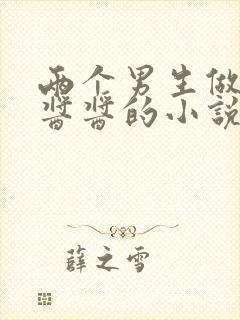 两个男生做
酱酱的小说
薛之雪